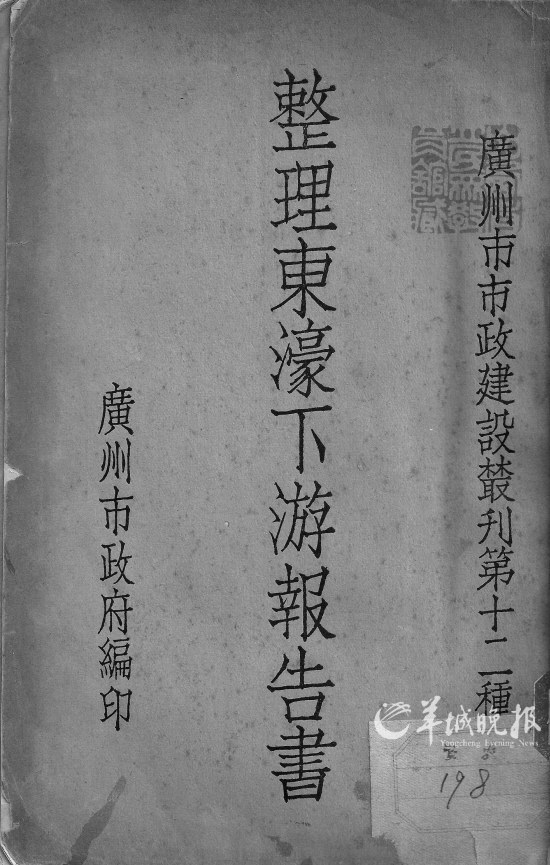 廣州市市政建設叢刊第十二種
整理東濠下游報告書
廣州市政府編印
羊城晚报
Yangcheng Evening News
198